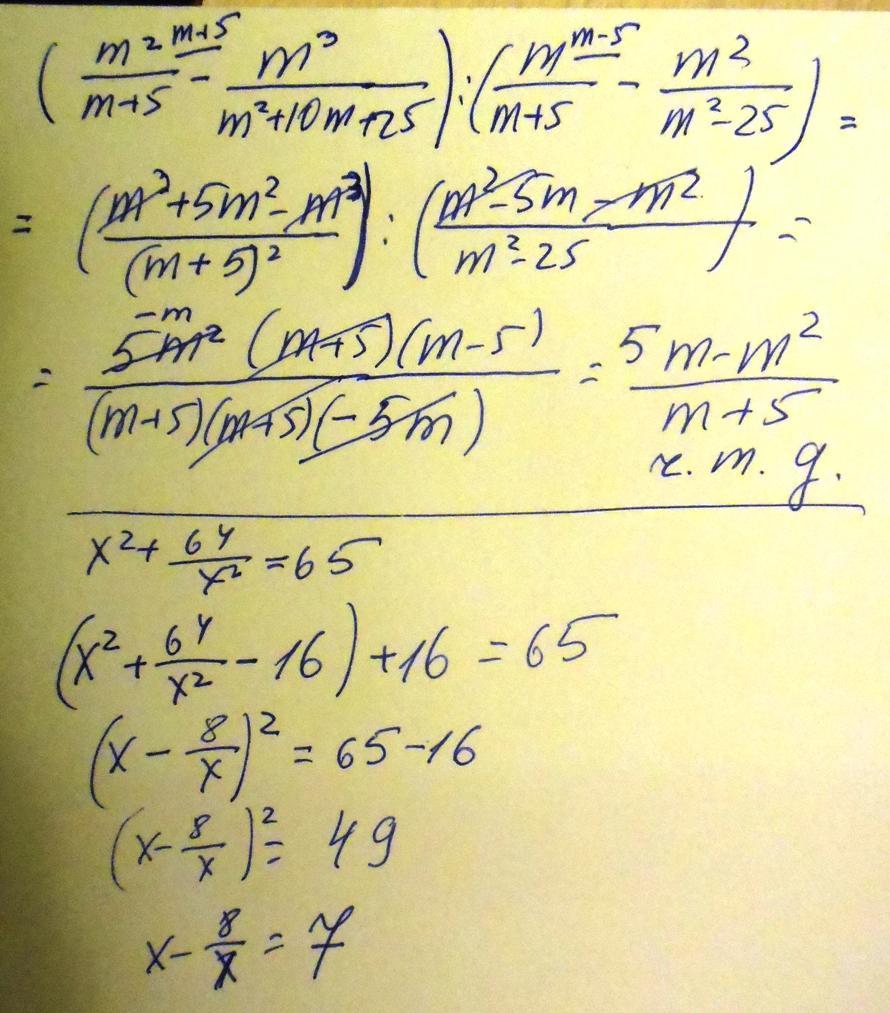 ( m² m+5 / m+5 - m³ / m²+10m+25 ) : ( m m-5 / m+5 - m² / m²-25 ) =
= ( m³+5m²-m³ / (m+5)² ) : ( m²-5m-m² / m²-25 ) =
= -m 5m² (m+5)(m-5) / (m+5)(m+5)(-5m) = 5m-m² / m+5
ч. т. д.
x² + 64/x² = 65
( x² + 64/x² - 16 ) + 16 = 65
( x - 8/x )² = 65-16
( x - 8/x )² = 49
x - 8/x = 7